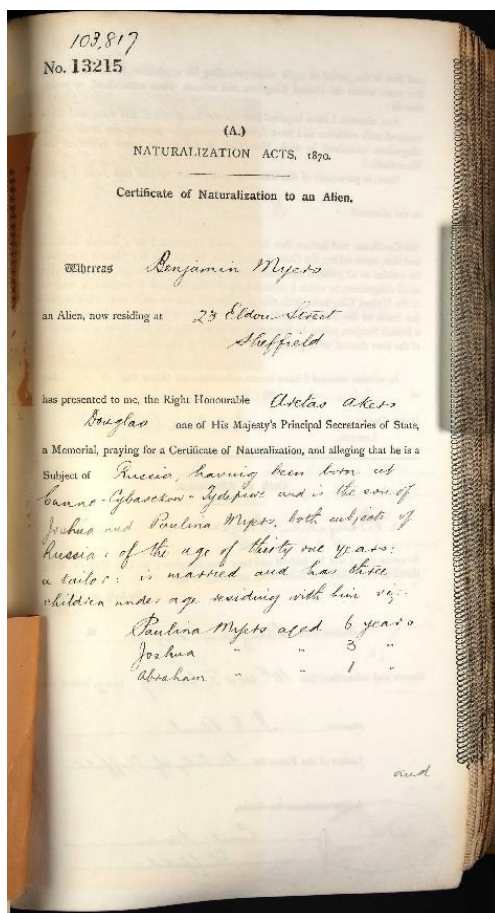 103,817
No. 13215
(A.)
NATURALIZATION ACTS, 1870.
Certificate of Naturalization to an Alien.
Whereas Benjamin Myers
an Alien, now residing at 23 Eldon Street
Sheffield
has presented to me, the Right Honourable Aretas Akers
Douglas one of His Majesty's Principal Secretaries of State,
a Memorial, praying for a Certificate of Naturalization, and alleging that he is a
Subject of Russia, having been born at
and is the son of
Joshua and Paulina Myers, both subjects of
Russia: of the age of thirty one years:
a tailor: is married and has three
children under age residing with him viz:-
Paulina Myers aged 6 years
Joshua " " 3 "
Abraham " " 1 "
and